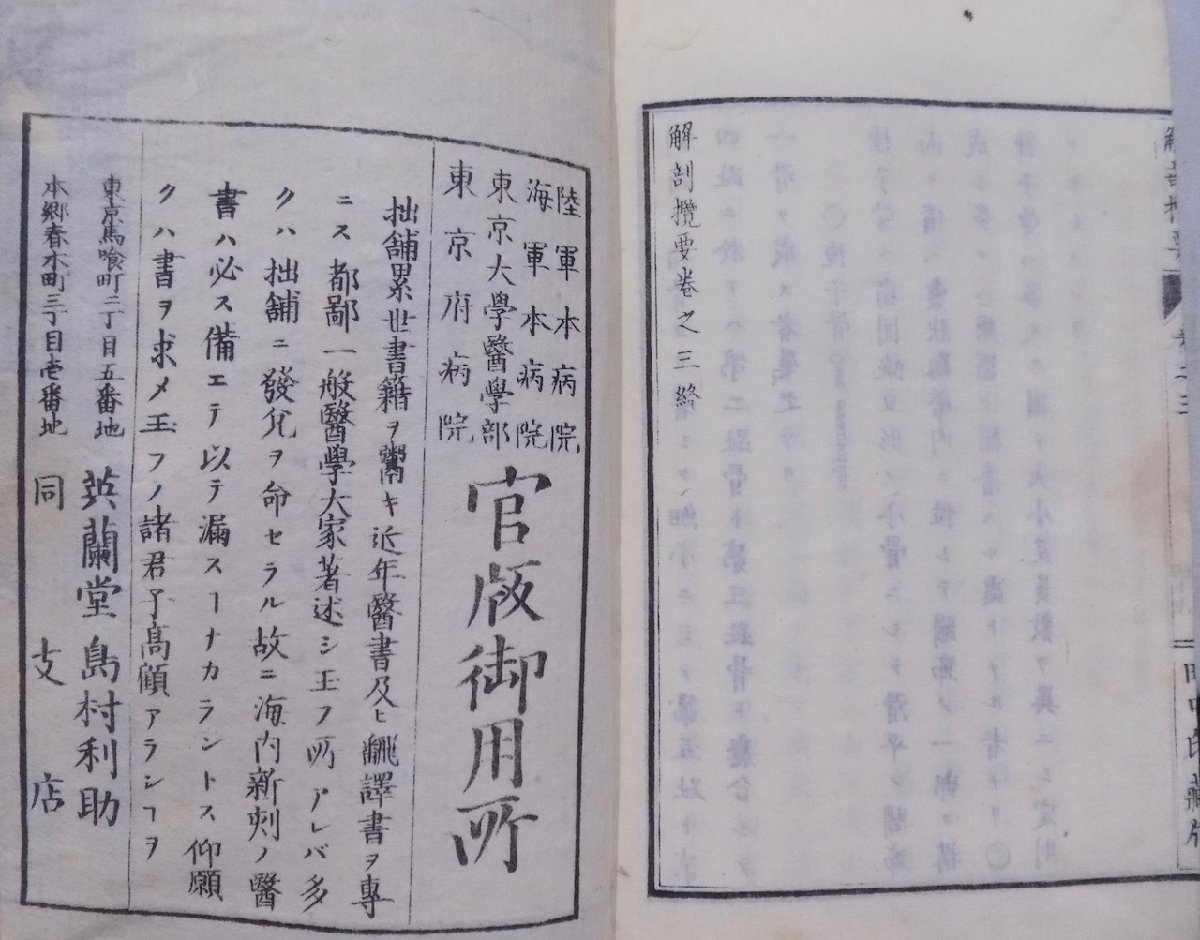 解剖攬要卷之三終
陸軍本病院
海軍本病院
東京大學醫學部
東京府病院
官版御用所
拙舖累世書籍ヲ鬻キ近年醫書及ヒ飜譯書ヲ專
ニス都鄙一般醫學大家著述シ玉フ所アレバ多
クハ拙舖ニ發兌ヲ命セラル故ニ海內新刻ノ醫
書ハ必ス備エテ以テ漏スヿナカラントス仰願
クハ書ヲ求メ玉フノ諸君子高顧アランヿヲ
東京馬喰町二丁目五番地
英蘭堂島村利助
本鄉春木町三丁目壱番地
同支店